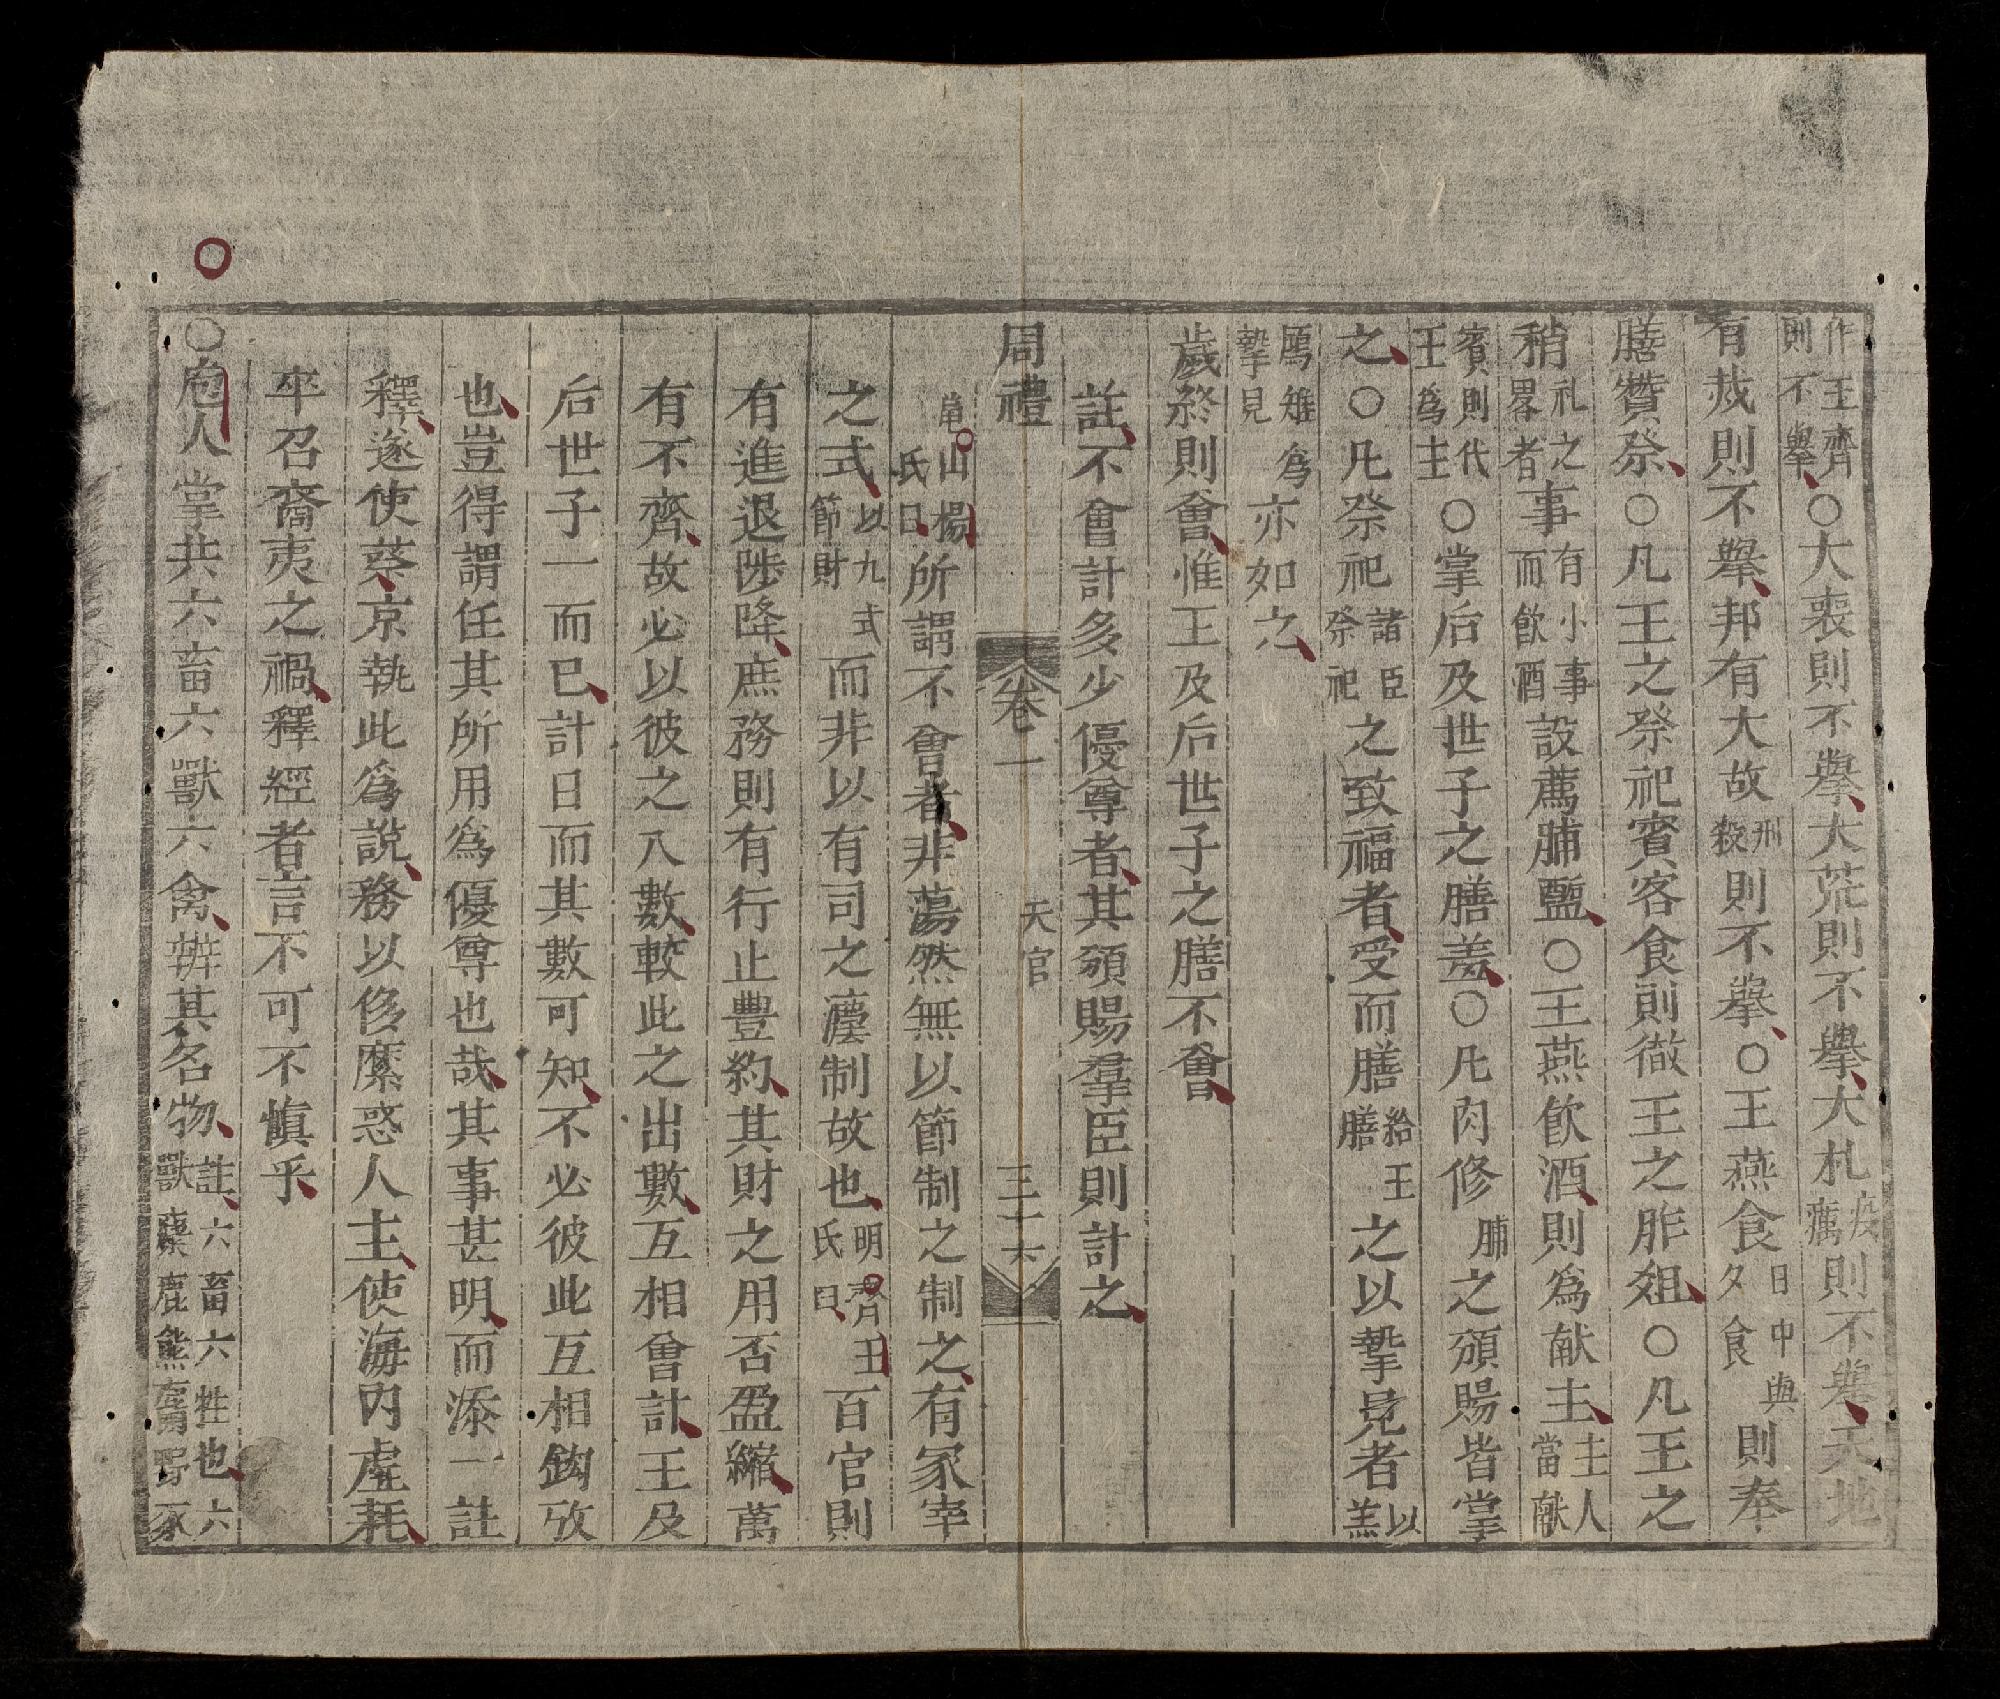 作王齊則不擧○大喪則不擧大荒則不擧大札疫癘則不擧天地
有烖則不擧邦有大故刑殺則不擧○王燕食日中與夕食則奉
膳贊祭○凡王之祭祀賓客食則徹王之胙俎○凡王之
稍礼之畧者事有小事而飲酒設薦脯醢○王燕飮酒則爲献主主人當献
賓則代王爲主○掌后及世子之膳羞○凡肉修脯之頒賜皆掌
之○凡祭祀諸臣祭祀之致福者受而膳給王膳之以摯見者以羔
鴈雉爲摯見亦如之
歲終則會惟王及后世子之膳不會
註不會計多少優尊者其頒賜羣臣則計之
周禮 卷一 天官 三十六
山楊氏曰所謂不會者非蕩然無以節制之制之有冢宰
之式以九式節財而非以有司之灋制故也明齊王氏曰百官則
有進退陟降庶務則有行止豐約其財之用否盈縮萬
有不齊故必以彼之入數較此之出數互相會計王及
后世子一而已計日而其數可知不必彼此互相鈎攷
也豈得謂任其所用爲優尊也哉其事甚明而添一註
釋遂使蔡京執此爲說務以侈縻惑人主使海內虛耗
卒召裔夷之禍釋經者言不可不愼乎
○庖人掌共六畜六獸六禽辨其名物註六畜六牲也六獸麋鹿熊麕野豕